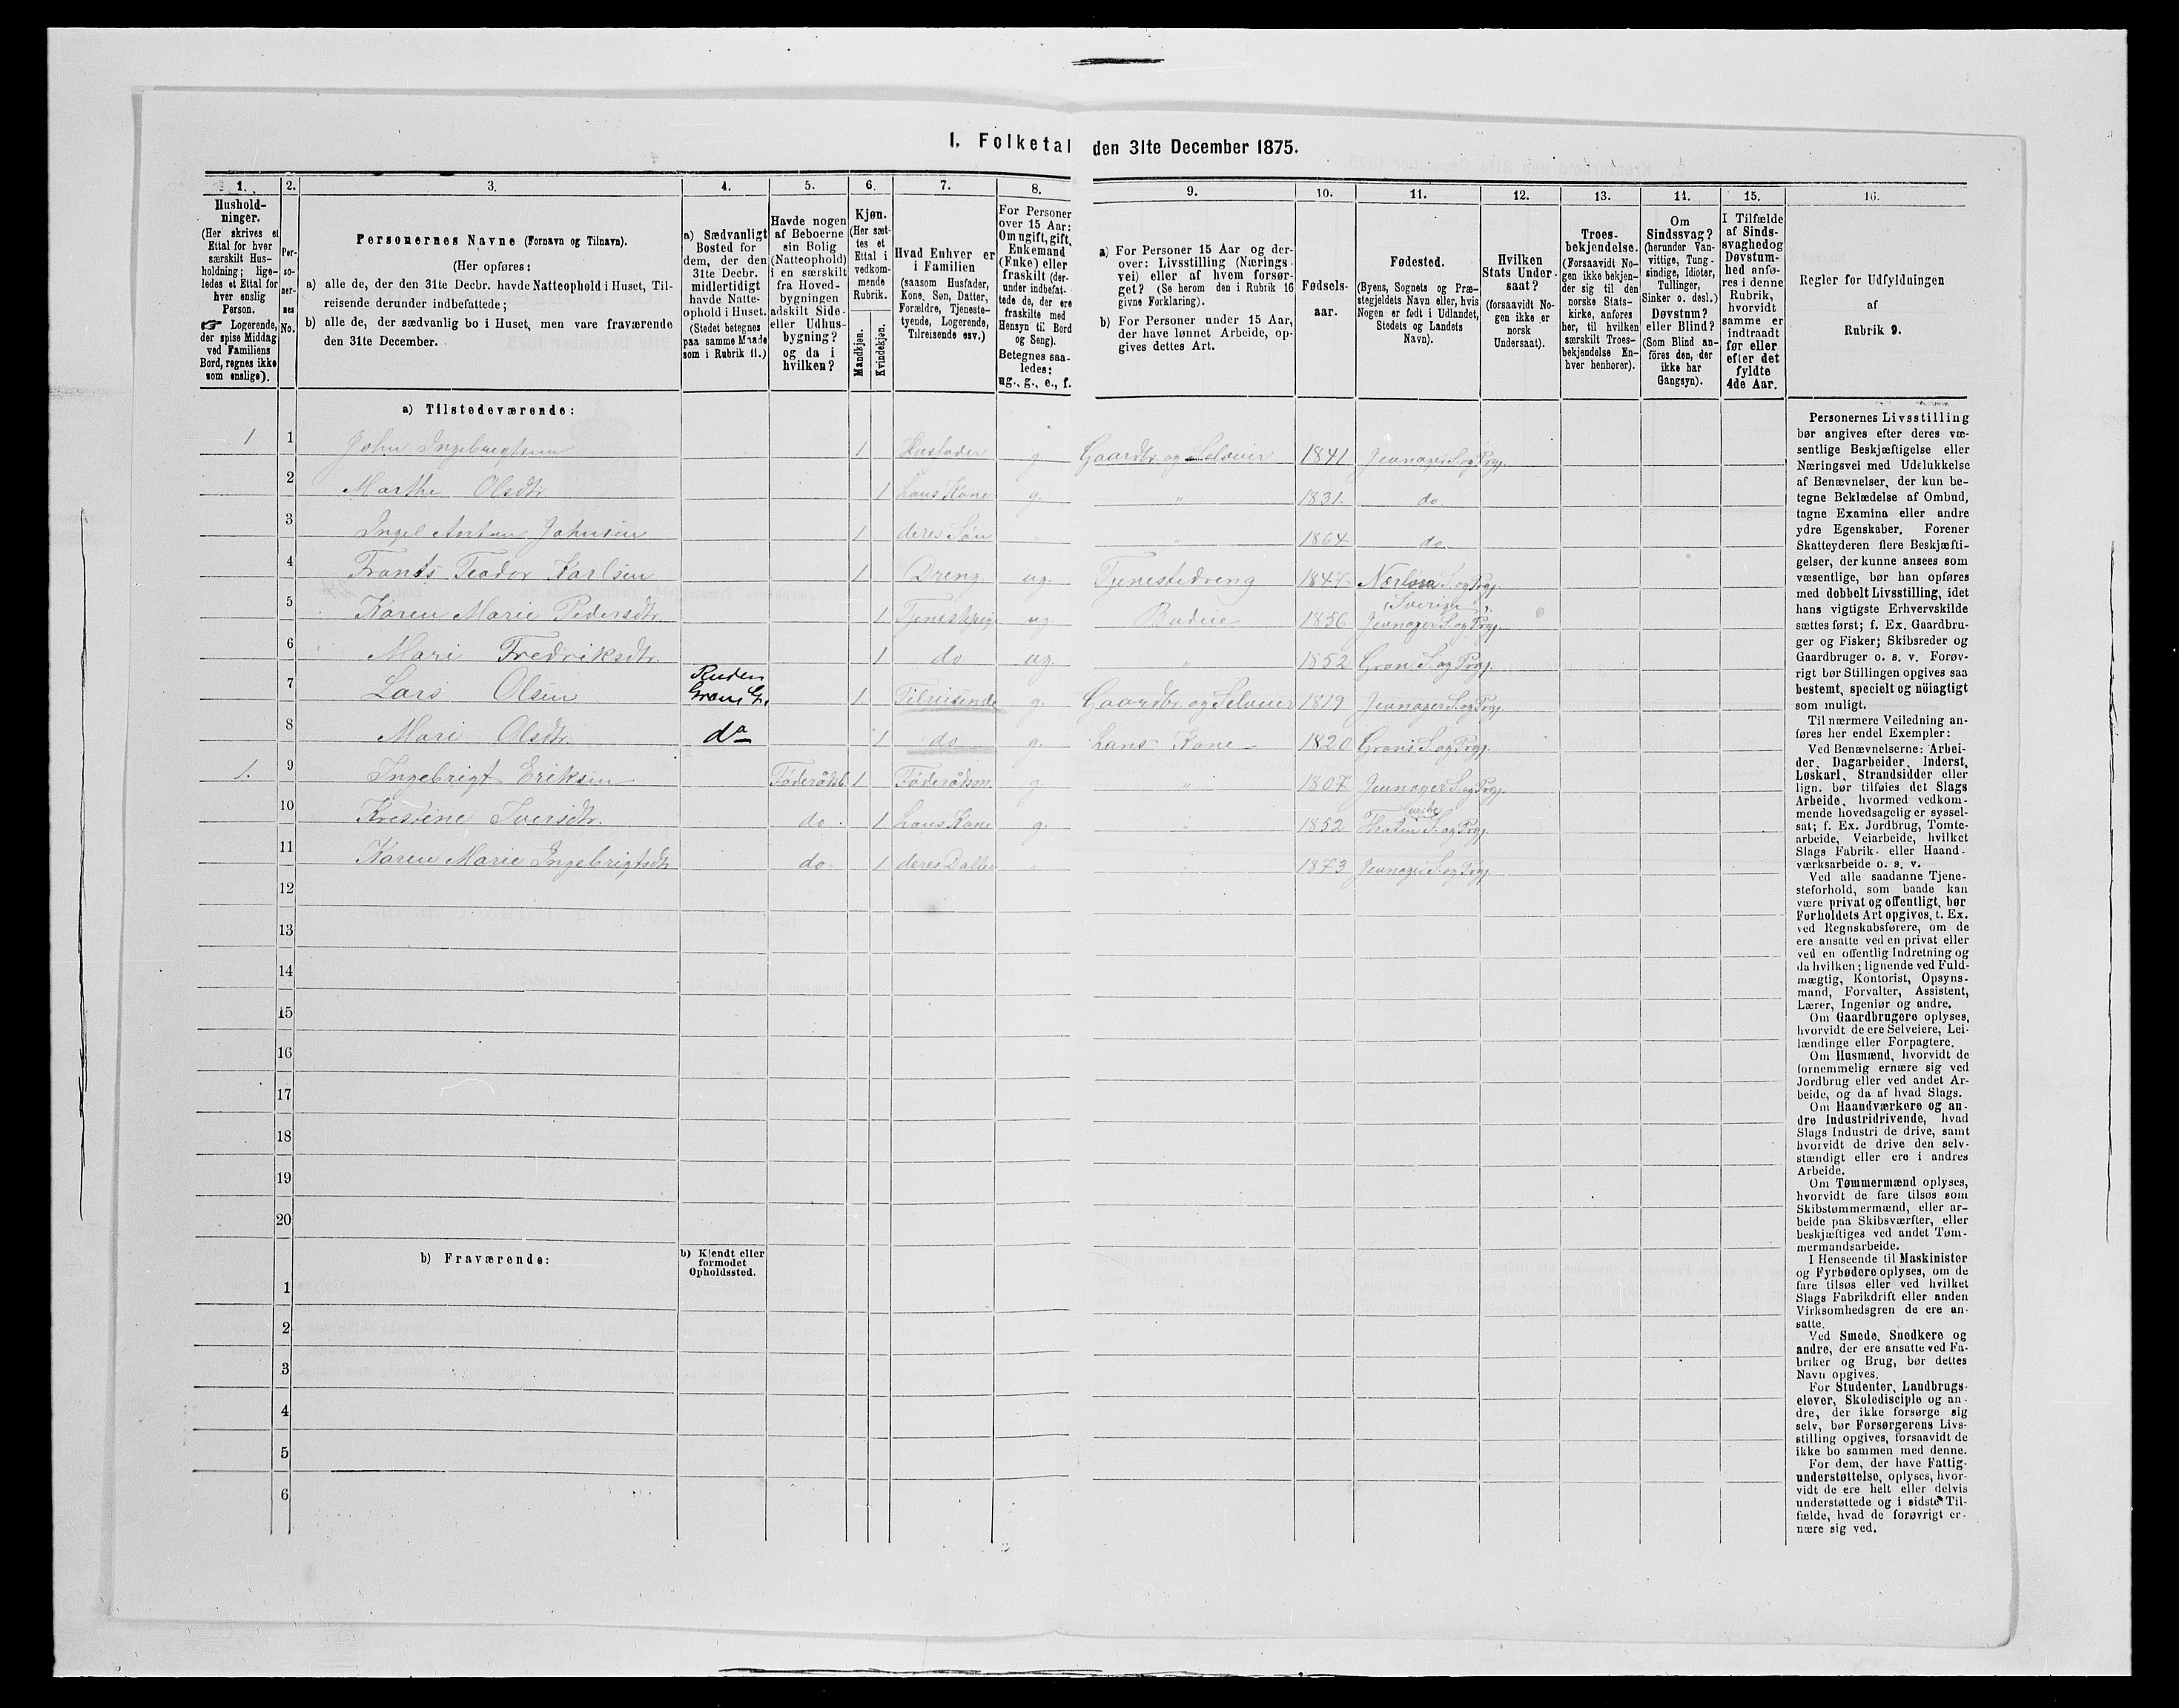 I. Folketal den 31te December 1875.
1. 2. 3. 4. 5. 6. 7. 8. 9. 10. 11. 12. 13. 14. 15. 16.
Hushold-
ninger.
(Her skrives et
Ettal for hver
særskilt Hus-
holdning; lige-
ledes et Ettal for
hver enslig
Person.
☞ Logerende,
der spise Middag
ved Familiens
Bord, regnes ikke
som enslige).
Per-
so-
ner-
nes
No.
Personernes Navne (Fornavn og Tilnavn).
(Her opføres:
a) alle de, der den 31te Decbr. havde Natteophold i Huset, Til-
reisende derunder indbefattede;
b) alle de, der sædvanlig bo i Huset, men vare fraværende
den 31te December.
a) Sædvanligt
Bosted for
dem, der den
31te Decbr.
midlertidigt
havde Natte-
ophold i Huset.
(Stedet betegnes
paa samme Maade
som i Rubrik 11.)
Havde nogen
af Beboerne
sin Bolig
(Natteophold)
i en særskilt
fra Hoved-
bygningen
adskilt Side-
eller Udhus-
bygning?
og da i
hvilken?
Kjøn.
(Her sæt-
tes et
Ettal i
vedkom-
mende
Rubrik.
Mandkjøn.
Kvindekjøn.
Hvad Enhver er
i Familien
(saasom Husfader,
Kone, Søn, Datter,
Forældre, Tjeneste-
tyende, Logerende,
Tilreisende osv.)
For Personer
over 15 Aar:
Om ugift, gift,
Enkemand
(Enke) eller
fraskilt (der-
under indbefat-
tede de, der ere
fraskilte med
Hensyn til Bord
og Seng).
Betegnes saa-
ledes:
ug., g., e., f.
a) For Personer 15 Aar og der-
over: Livsstilling (Nærings-
vei) eller af hvem forsør-
get? (Se herom den i Rubrik 16
givne Forklaring).
b) For Personer under 15 Aar,
der have lønnet Arbeide, op-
gives dettes Art.
Fødsels-
aar.
Fødested.
(Byens, Sognets og Præ-
stegjeldets Navn eller, hvis
Nogen er født i Udlandet,
Stedets og Landets
Navn).
Hvilken
Stats Under-
saat?
(forsaavidt No-
gen ikke er
norsk
Undersaat).
Troes-
bekjendelse.
(Forsaavidt No-
gen ikke bekjen-
der sig til den
norske Stats-
kirke, anføres
her, til hvilken
særskilt Troes-
bekjendelse En-
hver henhører).
Om
Sindssvag?
(herunder Van-
vittige, Tung-
sindige, Idioter,
Tullinger,
Sinker o. desl.)
Døvstum?
eller Blind?
(Som Blind an-
føres den, der
ikke har
Gangsyn).
I Tilfælde
af Sinds-
svaghed og
Døvstum-
hed anfø-
res i denne
Rubrik,
hvorvidt
samme er
indtraadt
før eller
efter det
fyldte
4de Aar.
Regler for Udfyldningen
af
Rubrik 9.
a) Tilstedeværende:
1 1 John Ingebrigtsen 1 Husfader g. Gaardbr. og Selveier 1841 Jevnager S. og Prgj.
2 Marthe Olsdtr. 1 hans Kone g. " 1831. do
3 Ingel Anton Johnsen 1 deres Søn " " 1864 do
4 Frants Teodor Karlsen 1 Dreng ug. Tjenestedreng 1847 S. og Prgj.
(Sverige).
5 Karen Marie Pedersdtr. 1 Tjenestepige ug. Budeie 1856 Jevnager S. og Prgj.
6 Mari Fredriksdtr. 1 do ug. " 1852 Gran S. og Prgj.
7 Lars Olsen Ruden
Gran G. 1. Tilreisende g. Gaardbr. og Selveier 1819 Jevnager S. og Prgj.
8 Mari Olsdtr. do 1 do g. hans Kone 1820 Grans S. og Prgj.
1. 9 Ingebrigt Eriksen Föderådsb. 1 Föderådsm. g. " 1807 Jevnager S. og Prgj.
10 Kristine Iversdtr. do. 1 hans Kone g. " 1852 S. og Prgj.
11 Karen Marie Ingebrigtsdtr. do. 1 deres Datter " " 1873 Jevnager S. og Prgj.
12
13
14
15
16
17
18
19
20
b) Fraværende:
b) Kjendt eller
formodet
Opholdssted.
1
2
3
4
5
6
Personernes Livsstilling
bør angives efter deres væ-
sentlige Beskjæftigelse eller
Næringsvei med Udelukkelse
af Benævnelser, der kun be-
tegne Beklædelse af Ombud,
tagne Examina eller andre
ydre Egenskaber. Forener
Skatteyderen flere Beskjæfti-
gelser, der kunne ansees som
væsentlige, bør han opføres
med dobbelt Livsstilling, idet
hans vigtigste Erhvervskilde
sættes først; f. Ex. Gaardbru-
ger og Fisker; Skibsreder og
Gaardbruger o. s. v. Forøv-
rigt bør Stillingen opgives saa
bestemt, specielt og nöiagtigt
som muligt.
Til nærmere Veiledning an-
føres her endel Exempler:
Ved Benævnelserne: Arbei-
der, Dagarbeider, Inderst,
Løskarl, Strandsidder eller
lign. bør tilføies det Slags
Arbeide, hvormed vedkom-
mende hovedsagelig er syssel-
sat; f. Ex. Jordbrug, Tomte-
arbeide, Veiarbeide, hvilket
Slags Fabrik- eller Haand-
værksarbeide o. s. v.
Ved alle saadanne Tjene-
steforhold, som baade kan
være privat og offentligt, bør
Forholdets Art opgives, t. Ex.
ved Regnskabsførere, om de
ere ansatte ved en privat eller
ved en offentlig Indretning og
da hvilken; lignende ved Fuld-
mægtig, Kontorist, Opsyns-
mand, Forvalter, Assistent,
Lærer, Ingeniør og andre.
Om Gaardbrugere oplyses,
hvorvidt de ere Selveiere, Lei-
lændinge eller Forpagtere.
Om Husmænd, hvorvidt de
fornemmelig ernære sig ved
Jordbrug eller ved andet Ar-
beide, og da af hvad Slags.
Om Haandværkere og an-
dre Industridrivende, hvad
Slags Industri de drive, samt
hvorvidt de drive den selv-
stændigt eller ere i andres
Arbeide.
Om Tømmermænd oplyses,
hvorvidt de fare tilsøs som
Skibstømmermænd, eller ar-
beide paa Skibsværfter, eller
beskjæftiges ved andet Tøm-
mermandsarbeide.
I Henseende til Maskinister
og Fyrbødere oplyses, om de
fare tilsøs eller ved hvilket
Slags Fabrikdrift eller anden
Virksomhedsgren de ere an-
satte.
Ved Smede, Snedkere og
andre, der ere ansatte ved Fa-
briker og Brug, bør dettes
Navn opgives.
For Studenter, Landbrugs-
elever, Skoledisciple og an-
dre, der ikke forsørge sig
selv, bør Forsørgerens Livs-
stilling opgives, forsaavidt de
ikke bo sammen med denne.
For dem, der have Fattig-
understøttelse, oplyses, hvor-
vidt de ere helt eller delvis
understøttede og i sidste Til-
fælde, hvad de forøvrigt er-
nære sig ved.